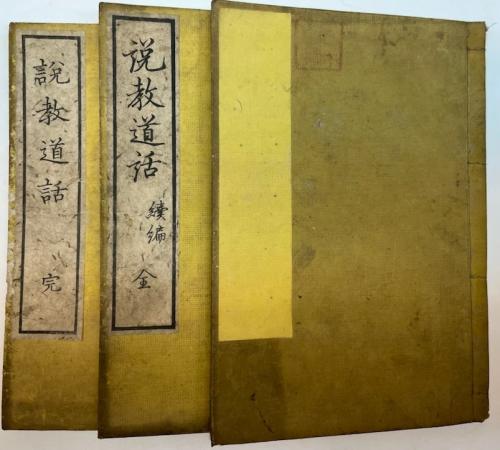 說教道話
完
説教道话
續編
全